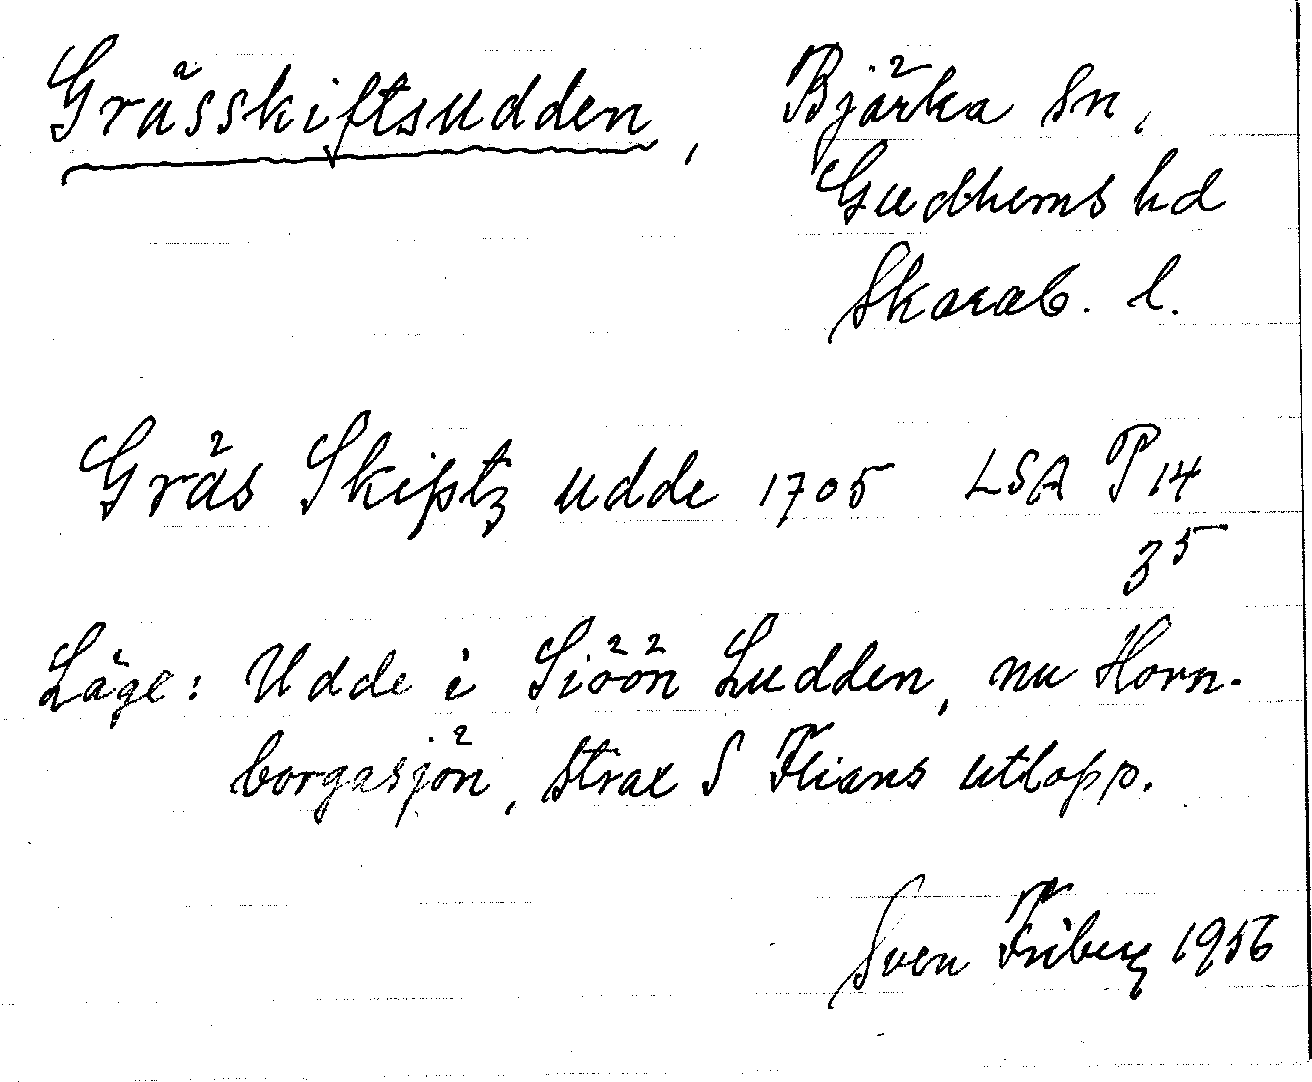 Grässkiftsudden, Bjärka sn,
Gudhems hd
Skarab. l.
Gräs Skiptz udde 1705 LSA P14
35
Läge: Udde i Siöön Ludden, nu Horn-
borgasjön, strax S Flians utlopp.
Sven Friberg 1956